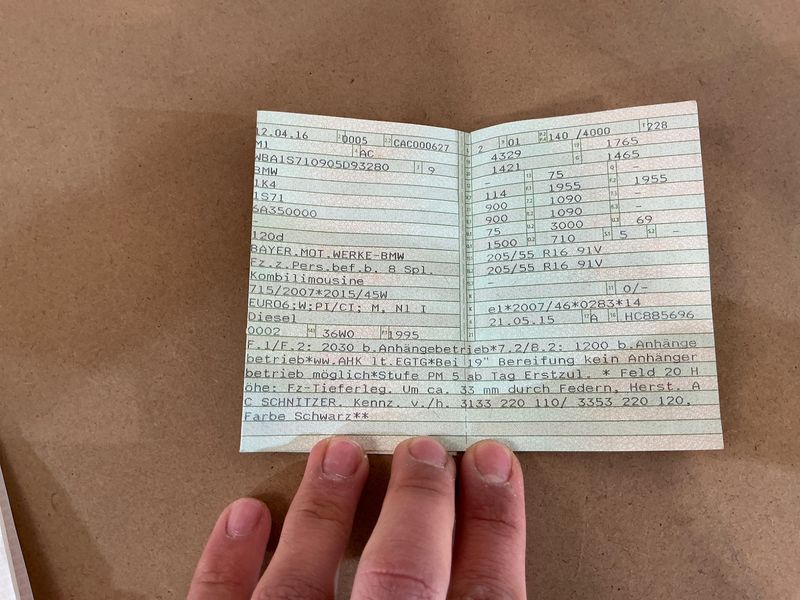 12.04.16 0005 CAC000627
M1 AC
WBA1S710905D93280 9
BMW
1K4
1S71
6A350000
-
120d
BAYER.MOT.WERKE-BMW
Fz.z.Pers.bef.b. 8 Spl.
Kombilimousine
715/2007*2015/45W
EURO6;W;PI/CI; M, N1 I
Diesel
0002 36W0 1995
2 01 140 /4000 228
4329 1765
1421 1465
- 75
114 1955 1955
900 1090 -
900 1090 -
75 3000 69
1500 710 5 -
205/55 R16 91V
205/55 R16 91V
-
0/-
e1*2007/46*0283*14
21.05.15 A HC885696
F.1/F.2: 2030 b.Anhängebetrieb*7.2/8.2: 1200 b.Anhänge
betrieb*ww.AHK lt.EGTG*Bei 19" Bereifung kein Anhänger
betrieb möglich*Stufe PM 5 ab Tag Erstzul. * Feld 20 H
öhe: Fz-Tieferleg. Um ca. 33 mm durch Federn, Herst. A
C SCHNITZER, Kennz. v./h. 3133 220 110/ 3353 220 120,
Farbe Schwarz**